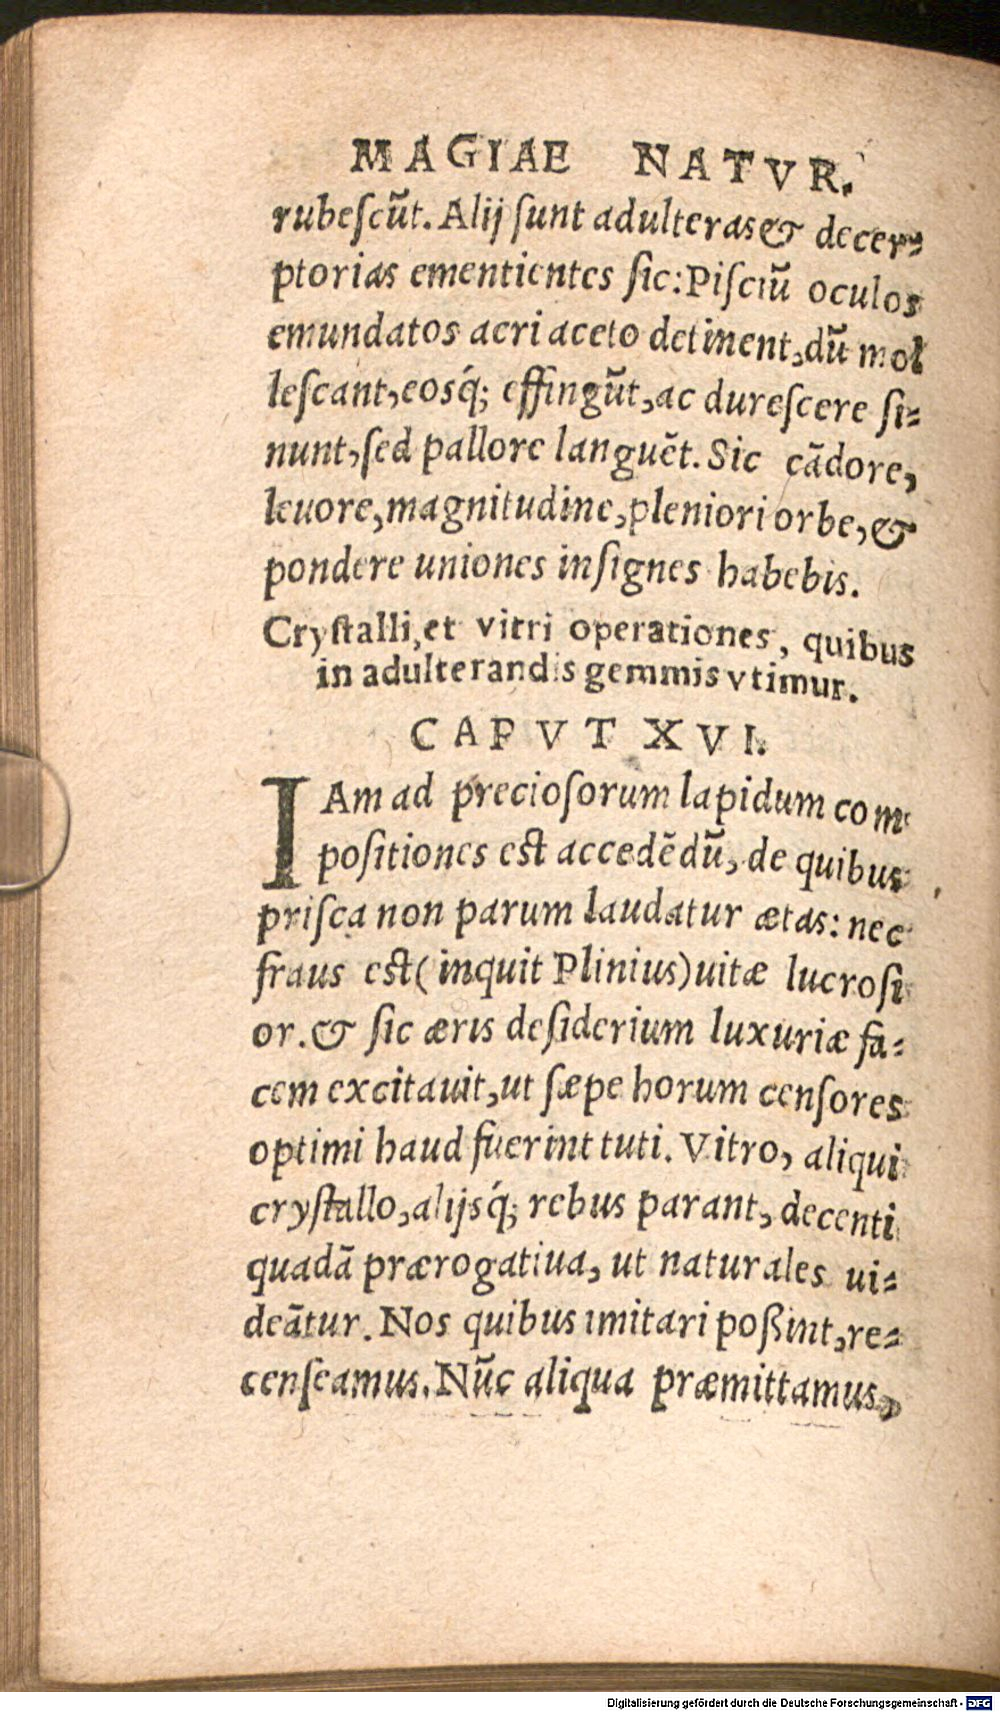 MAGIAE NATVR.
rubeſcũt. Alij ſunt adulteras & decer⸗
ptorias ementientes ſic: Piſciũ oculos
emundatos acri aceto detinent, dũ mol
leſcant, eosq́; effingũt, ac dureſcere ſi⸗
nunt, ſed pallore languẽt. Sic cãdore,
leuore, magnitudine, pleniori orbe, &
pondere uniones inſignes habebis.
Cryſtalli, et vitri operationes, quibus
in adulterandis gemmis vtimur.
CAPVT XVI.
IAm ad precioſorum lapidum com
poſitiones eſt accedẽdũ, de quibus
priſca non parum laudatur ætas: nec
fraus eſt (inquit Plinius) uitæ lucroſi
or. & ſic æris deſiderium luxuriæ fa⸗
cem excitauit, ut ſæpe horum cenſores
optimi haud fuerint tuti. Vitro, aliqui
cryſtallo, alijsq́; rebus parant, decenti
quadã prærogatiua, ut naturales ui⸗
deãtur. Nos quibus imitari poßint, re⸗
cenſeamus. Nũc aliqua præmittamus,
Digitalisierung gefördert durch die Deutsche Forschungsgemeinschaft - DFG